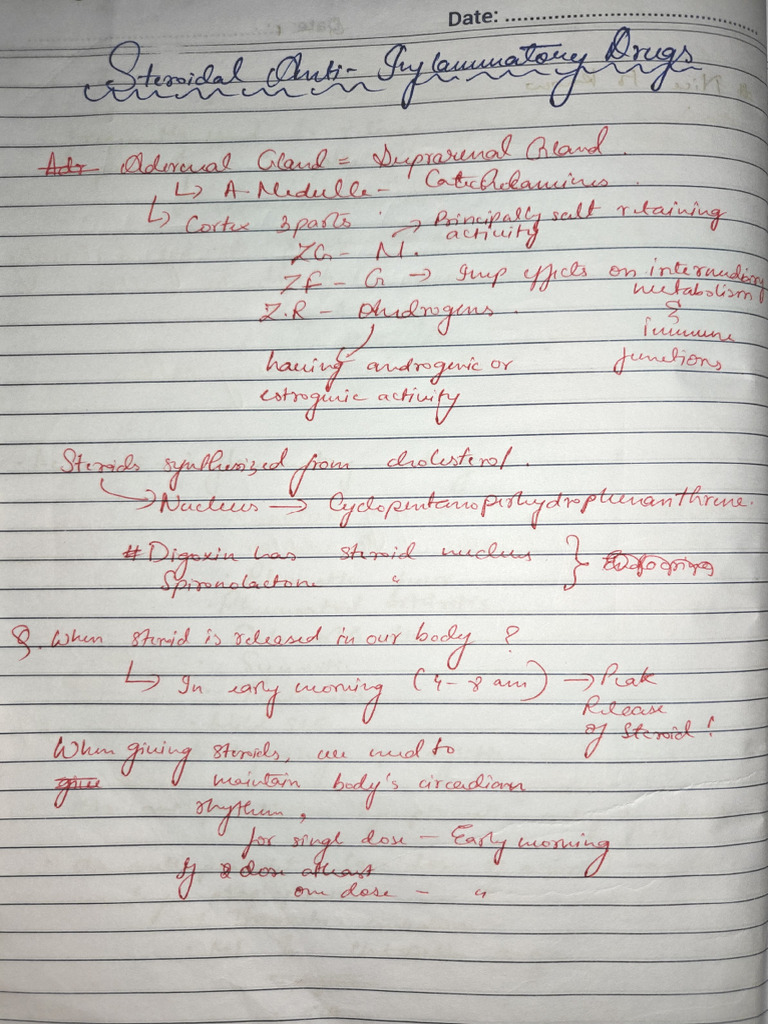 Date:
Steroidal Anti-Inflammatory Drugs
Adrenal Gland = Suprarenal Gland.
↳ A. Medulla - Catecholamines
↳ Cortex 3 parts
→ Principally salt retaining activity
ZG - M.
ZF - G → Imp effects on intermediary metabolism & immune functions
Z.R - Androgens.
having androgenic or
estrogenic activity
Steroids synthesized from cholesterol.
→ Nucleus → Cyclopentanoperhydrophenanthrene.
# Digoxin has steroid nucleus
Spironolactone "
Q. When steroid is released in our body?
↳ In early morning (4-8 am) → Peak
Release
of steroid!
When giving steroids, we need to
maintain body's circadian
rhythm,
for singl dose - Early morning
If 2 dose atleast
one dose - "